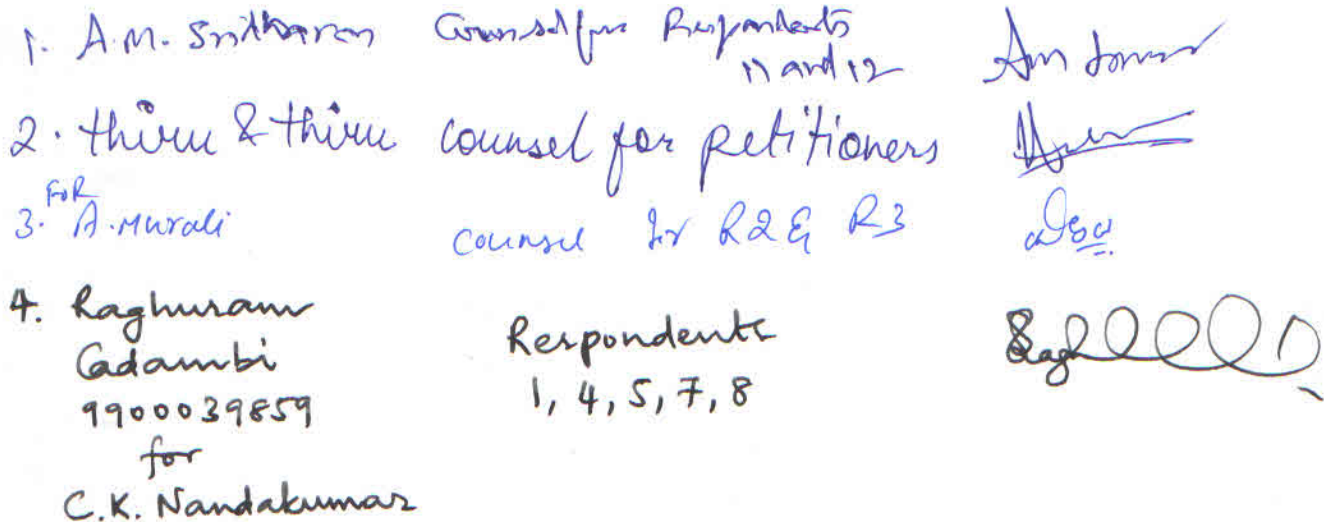 1. A.M. Sridharan Counsel for Respondents
11 and 12
2. thiru & thiru counsel for petitioners
FOR
3. A. Murali counsel for R2 & R3
4. Raghuram
Cadambi
9900039859
for
C.K. Nandakumar
Respondents
1, 4, 5, 7, 8